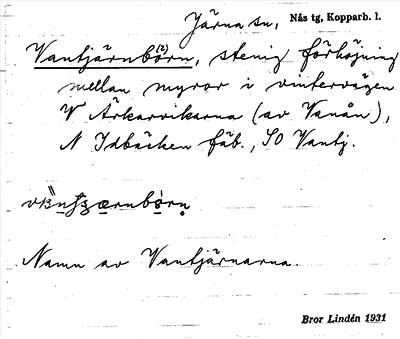 Järna sn, Nås tg, Kopparb. l.
Vantjärnbörn, stenig förhöjning
(2)
mellan myror i vintervägen
V Ärkarvikarna (av Vanån),
N Idbäcken fäb., SO Vantj.
Namn av Vantjärnarna.
Bror Lindén 1931